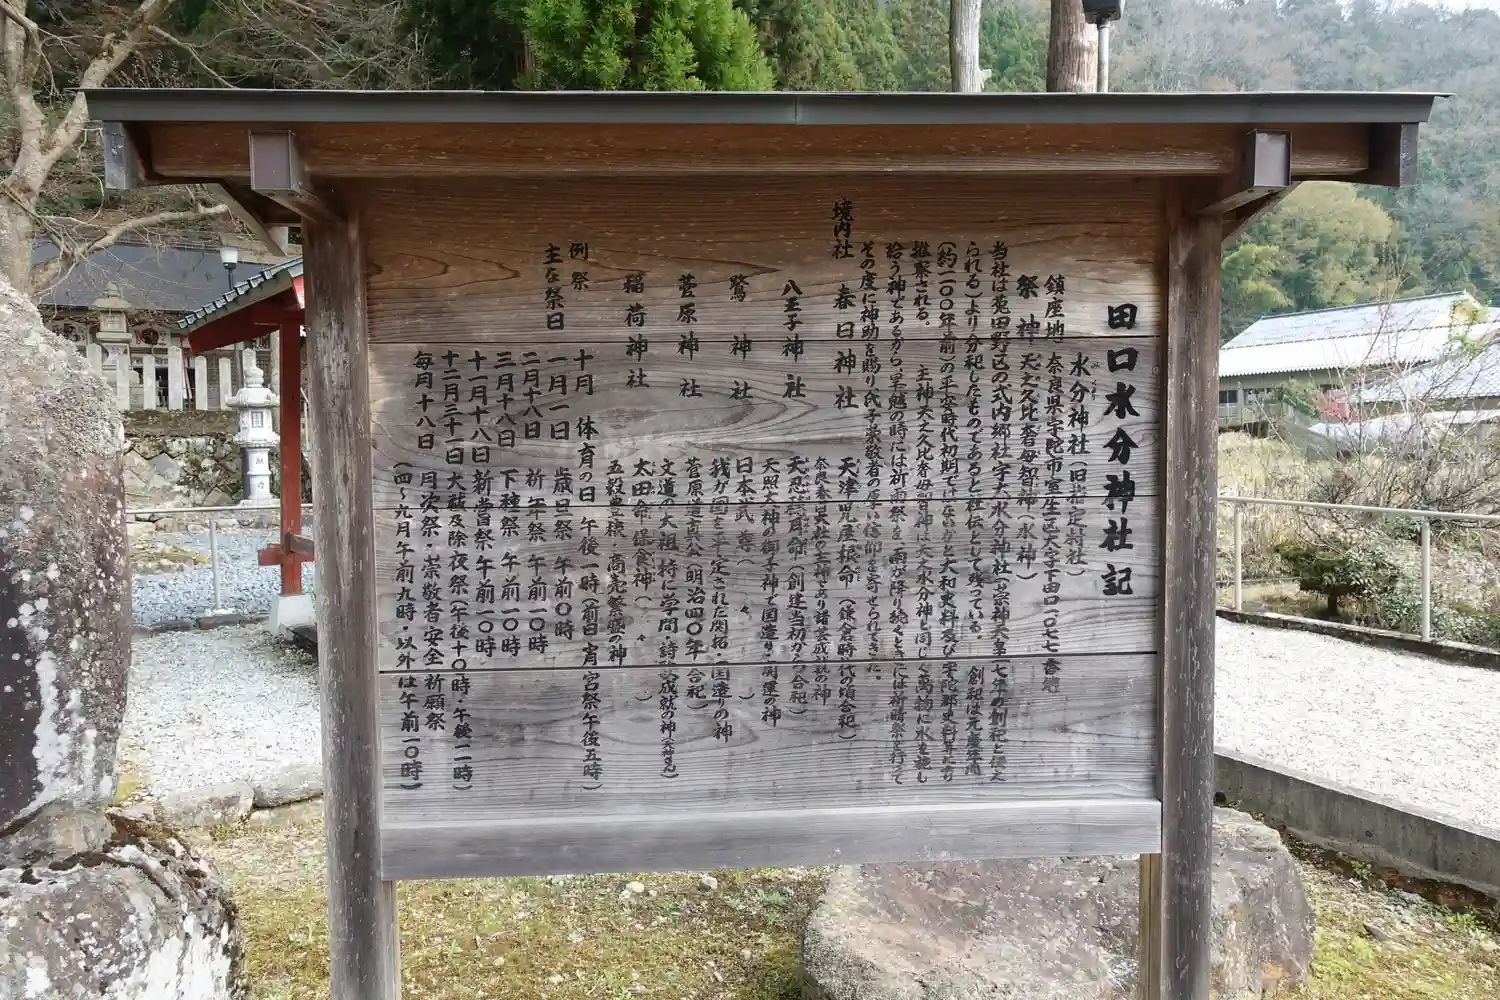 田口水分神社記
水分神社(旧指定村社)
鎮座地 奈良県宇陀市室生区大字下田口一〇七七番地
祭神 天之久比奢母智神(水神)
当社は菟田野区の式内郷社宇太水分神社(崇神天皇七年の創祀と伝え
られる)より分祀したものであると社伝として残っている。創祀は元慶年間
(約一一〇〇年前)の平安時代初期ではないかと大和史料及び宇陀郡史料等により
推察される。 主神天之久比奢母智神は天之水分神と同じく万物に水を施し
給う神であるから、旱魃の時には祈雨祭を、雨が降り続くときには祈晴祭を行って
その度に神助を賜り氏子崇敬者の厚い信仰を寄せられてきた。
境内社 春日神社 天津児屋根命(鎌倉時代の頃合祀)
奈良春日大社の
八王子神社 天忍穂耳命(創建当初から合祀)
天照大神の御子神で国造り・開運の神
鷲神社 日本武尊(〃)
我が国を平定された開拓・国造りの神
菅原神社 菅原道真公(明治四〇年合祀)
文道の大祖・特に学問・詩歌成就の神(天神さん)
稲荷神社 太田命・保食神(〃)
五穀豊穣・商売繁盛の神
例祭 十月 体育の日 午後一時(前日 宵宮祭午後五時)
主な祭日 一月一日 歳旦祭 午前〇時
二月十八日 祈年祭 午前一〇時
三月十八日 下種祭 午前一〇時
十一月十八日 新嘗祭 午前一〇時
十二月三十一日 大祓及除夜祭(午後十〇時・午後一一時)
毎月十八日 月次祭・崇敬者安全祈願祭
(四〜九月午前九時・以外は午前一〇時)